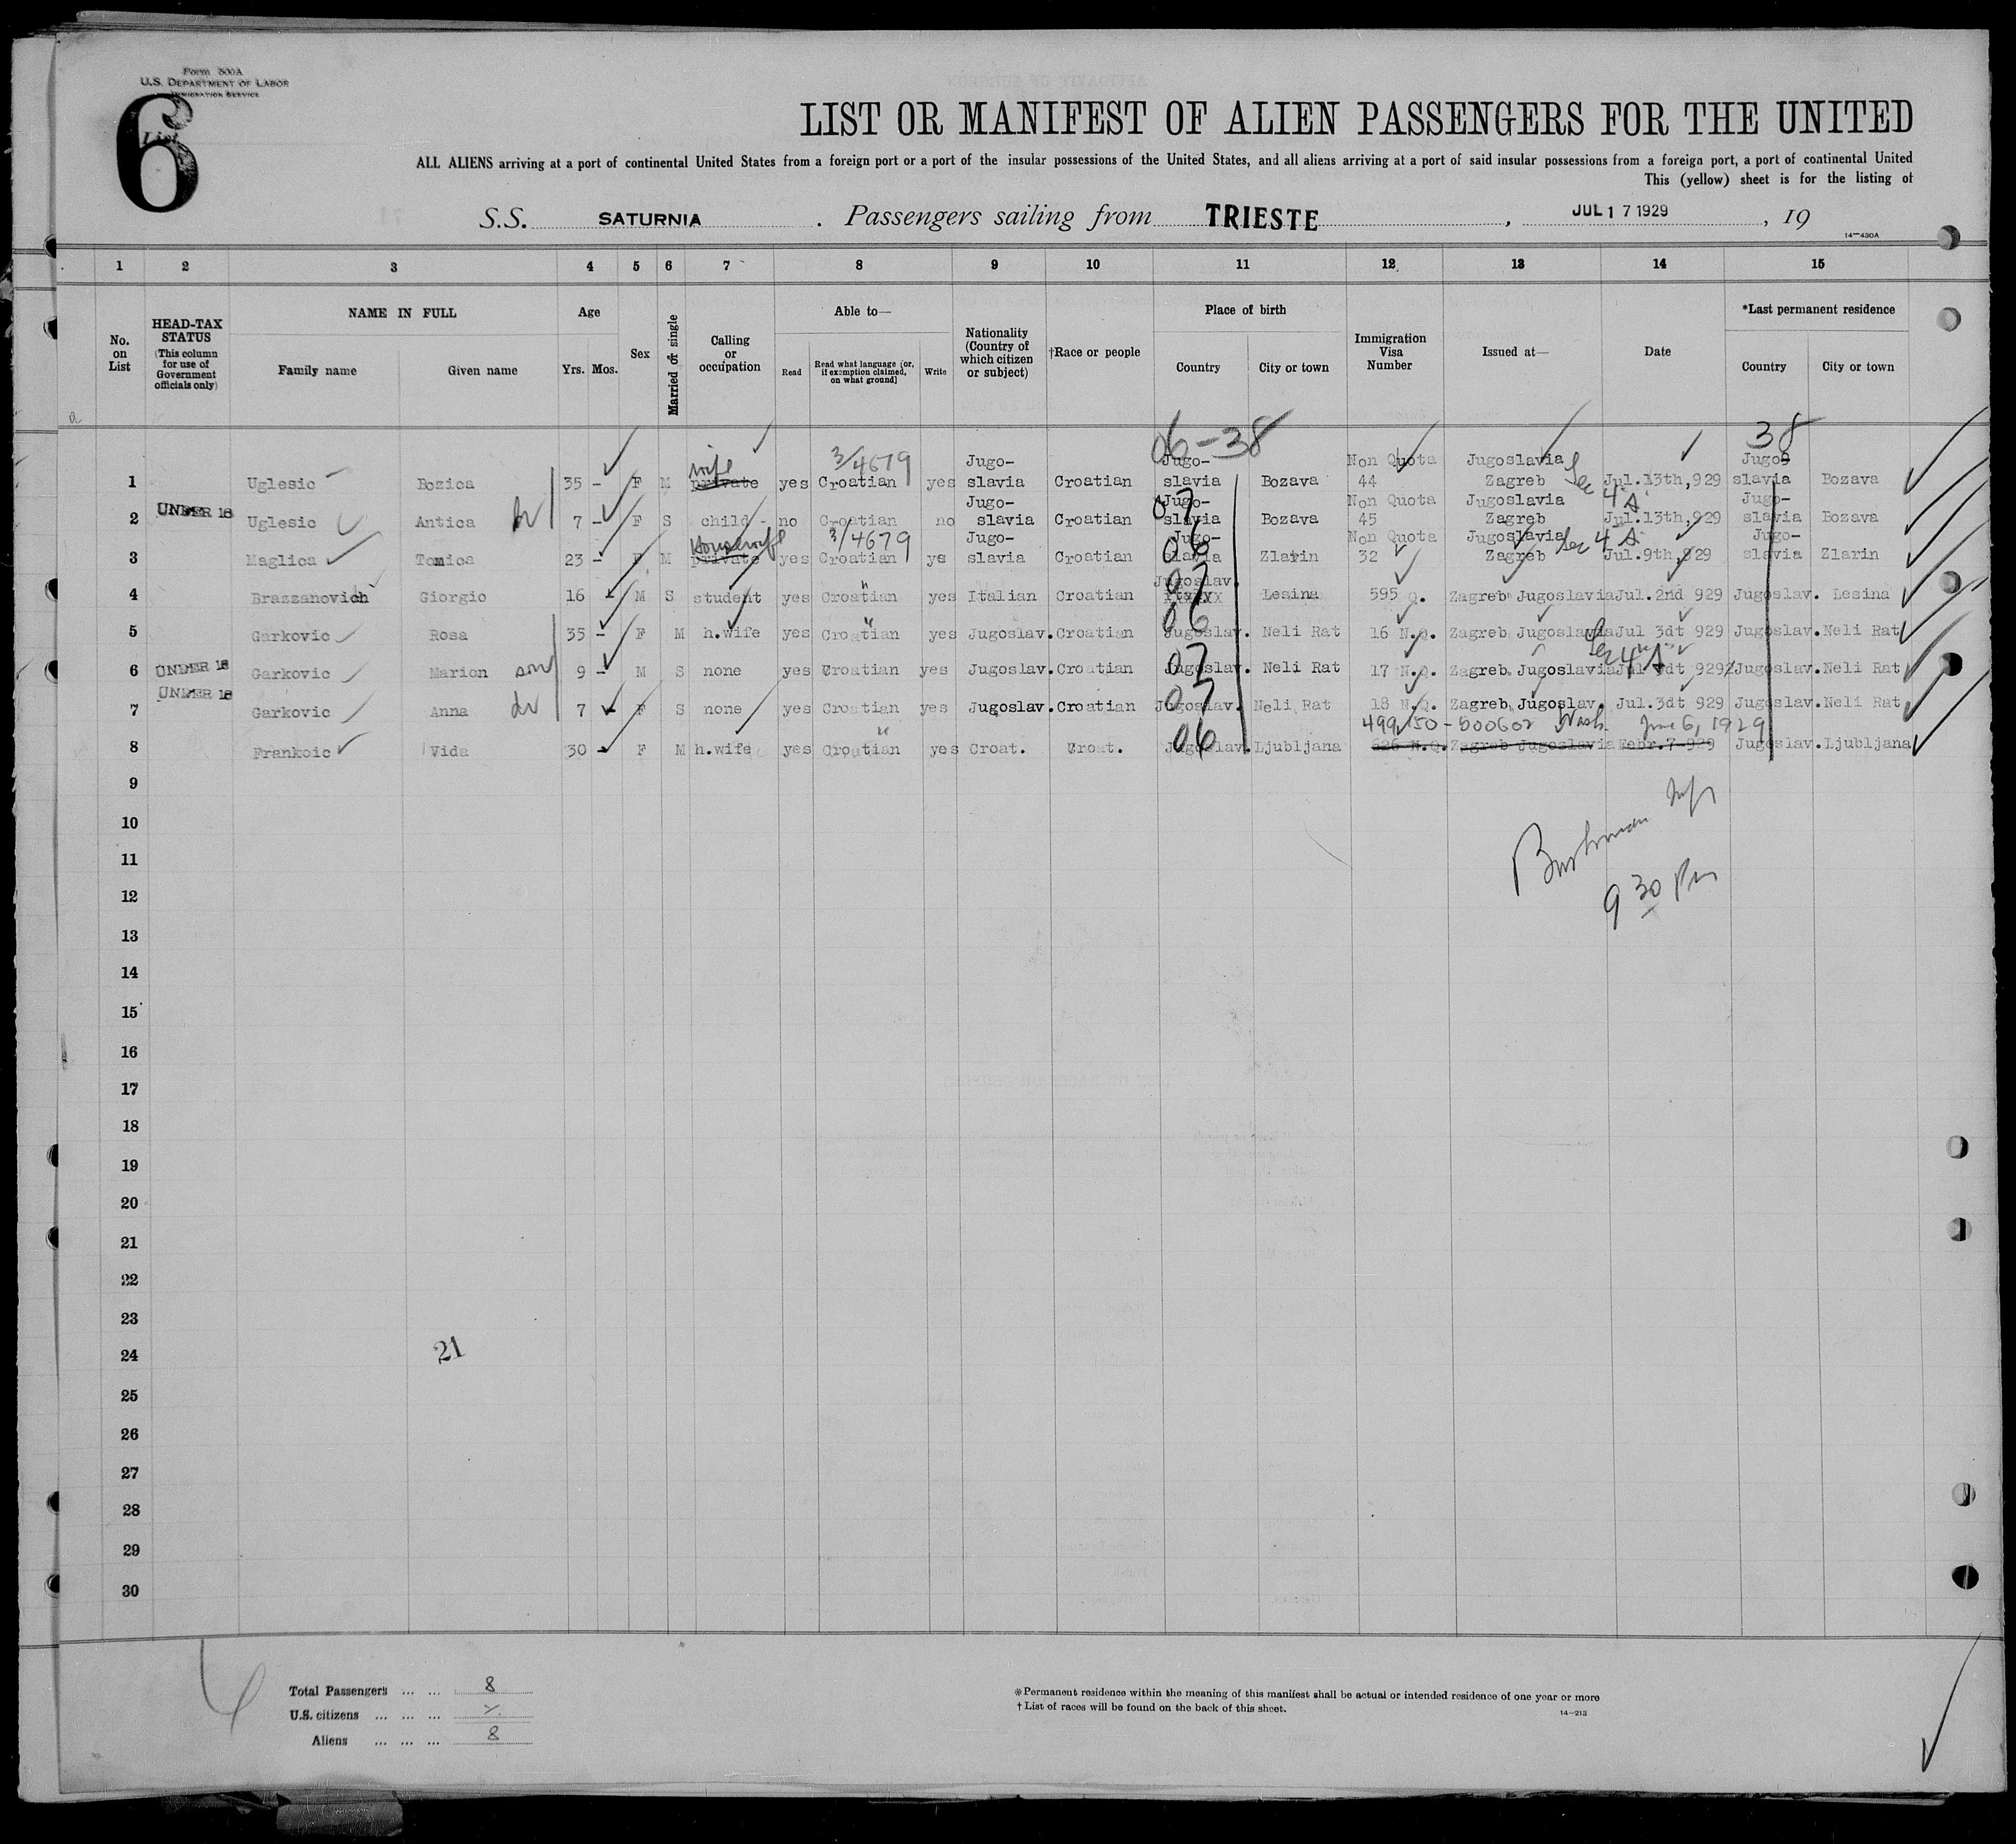 Form 500A
U.S. DEPARTMENT OF LABOR
IMMIGRATION SERVICE
List
6
LIST OR MANIFEST OF ALIEN PASSENGERS FOR THE UNITED
ALL ALIENS arriving at a port of continental United States from a foreign port or a port of the insular possessions of the United States, and all aliens arriving at a port of said insular possessions from a foreign port, a port of continental United
This (yellow) sheet is for the listing of
S.S. SATURNIA. Passengers sailing from TRIESTE, JUL 17 1929, 19
14—430A
1 2 3 4 5 6 7 8 9 10 11 12 13 14 15
No. on List
HEAD-TAX STATUS (This column for use of Government officials only)
NAME IN FULL
Family name Given name
Age
Yrs. Mos.
Sex
Married or single
Calling or occupation
Able to—
Read Read what language [or, if exemption claimed, on what ground] Write
Nationality (Country of which citizen or subject)
†Race or people
Place of birth
Country City or town
Immigration Visa Number
Issued at—
Date
*Last permanent residence
Country City or town
06-38 38
1 Uglesic Bozica 35 - F M wife private yes 3/4679 Croatian yes Jugo-slavia Croatian Jugo-slavia Bozava Non Quota 44 Jugoslavia Zagreb Jul.13th,929 Jugo-slavia Bozava
Sec 4 A
2 UNDER 16 Uglesic Antica 7 - F S child - no Croatian no Jugo-slavia Croatian 07 Jugo-slavia Bozava Non Quota 45 Jugoslavia Zagreb Jul.13th,929 Jugo-slavia Bozava
3 Maglica Tomica 23 - F M Housewife private yes 3/4679 Croatian yes Jugo-slavia Croatian 06 Jugo-slavia Zlarin Non Quota 32 Jugoslavia Zagreb Sec 4 A Jul.9th,929 Jugo-slavia Zlarin
4 Brazzanovich Giorgio 16 - M S student yes Croatian yes Italian Croatian 07 Jugoslav. Lesina 595 Q. Zagreb Jugoslavia Jul.2nd 929 Jugoslav. Lesina
5 Garkovic Rosa 35 - F M h.wife yes Croatian yes Jugoslav. Croatian 06 Jugoslav. Neli Rat 16 N.Q. Zagreb Jugoslavia Jul 3dt 929 Jugoslav. Neli Rat
Sec 4 A
6 UNDER 16 Garkovic Marion son 9 - M S none yes Croatian yes Jugoslav. Croatian 07 Jugoslav. Neli Rat 17 N.Q. Zagreb Jugoslavia Jul 3dt 929 Jugoslav. Neli Rat
7 UNDER 16 Garkovic Anna 7 - F S none yes Croatian yes Jugoslav. Croatian 07 Jugoslav. Neli Rat 18 N.Q. Zagreb Jugoslav. Jul.3dt 929 Jugoslav. Neli Rat
Wash. June 6, 1929
8 Frankoic Vida 30 - F M h.wife yes Croatian yes Croat. Croat. 06 Jugoslav. Ljubljana 526 N.Q. Zagreb Jugoslavia Febr.7-929 Jugoslav. Ljubljana
9
10
11
12
9 30 Pm
13
14
15
16
17
18
19
20
21
22
23
24
21
25
26
27
28
29
30
Total Passengers ... ... 8
U.S. citizens ... ... ...
Aliens ... ... ... 8
*Permanent residence within the meaning of this manifest shall be actual or intended residence of one year or more
† List of races will be found on the back of this sheet.
14—213